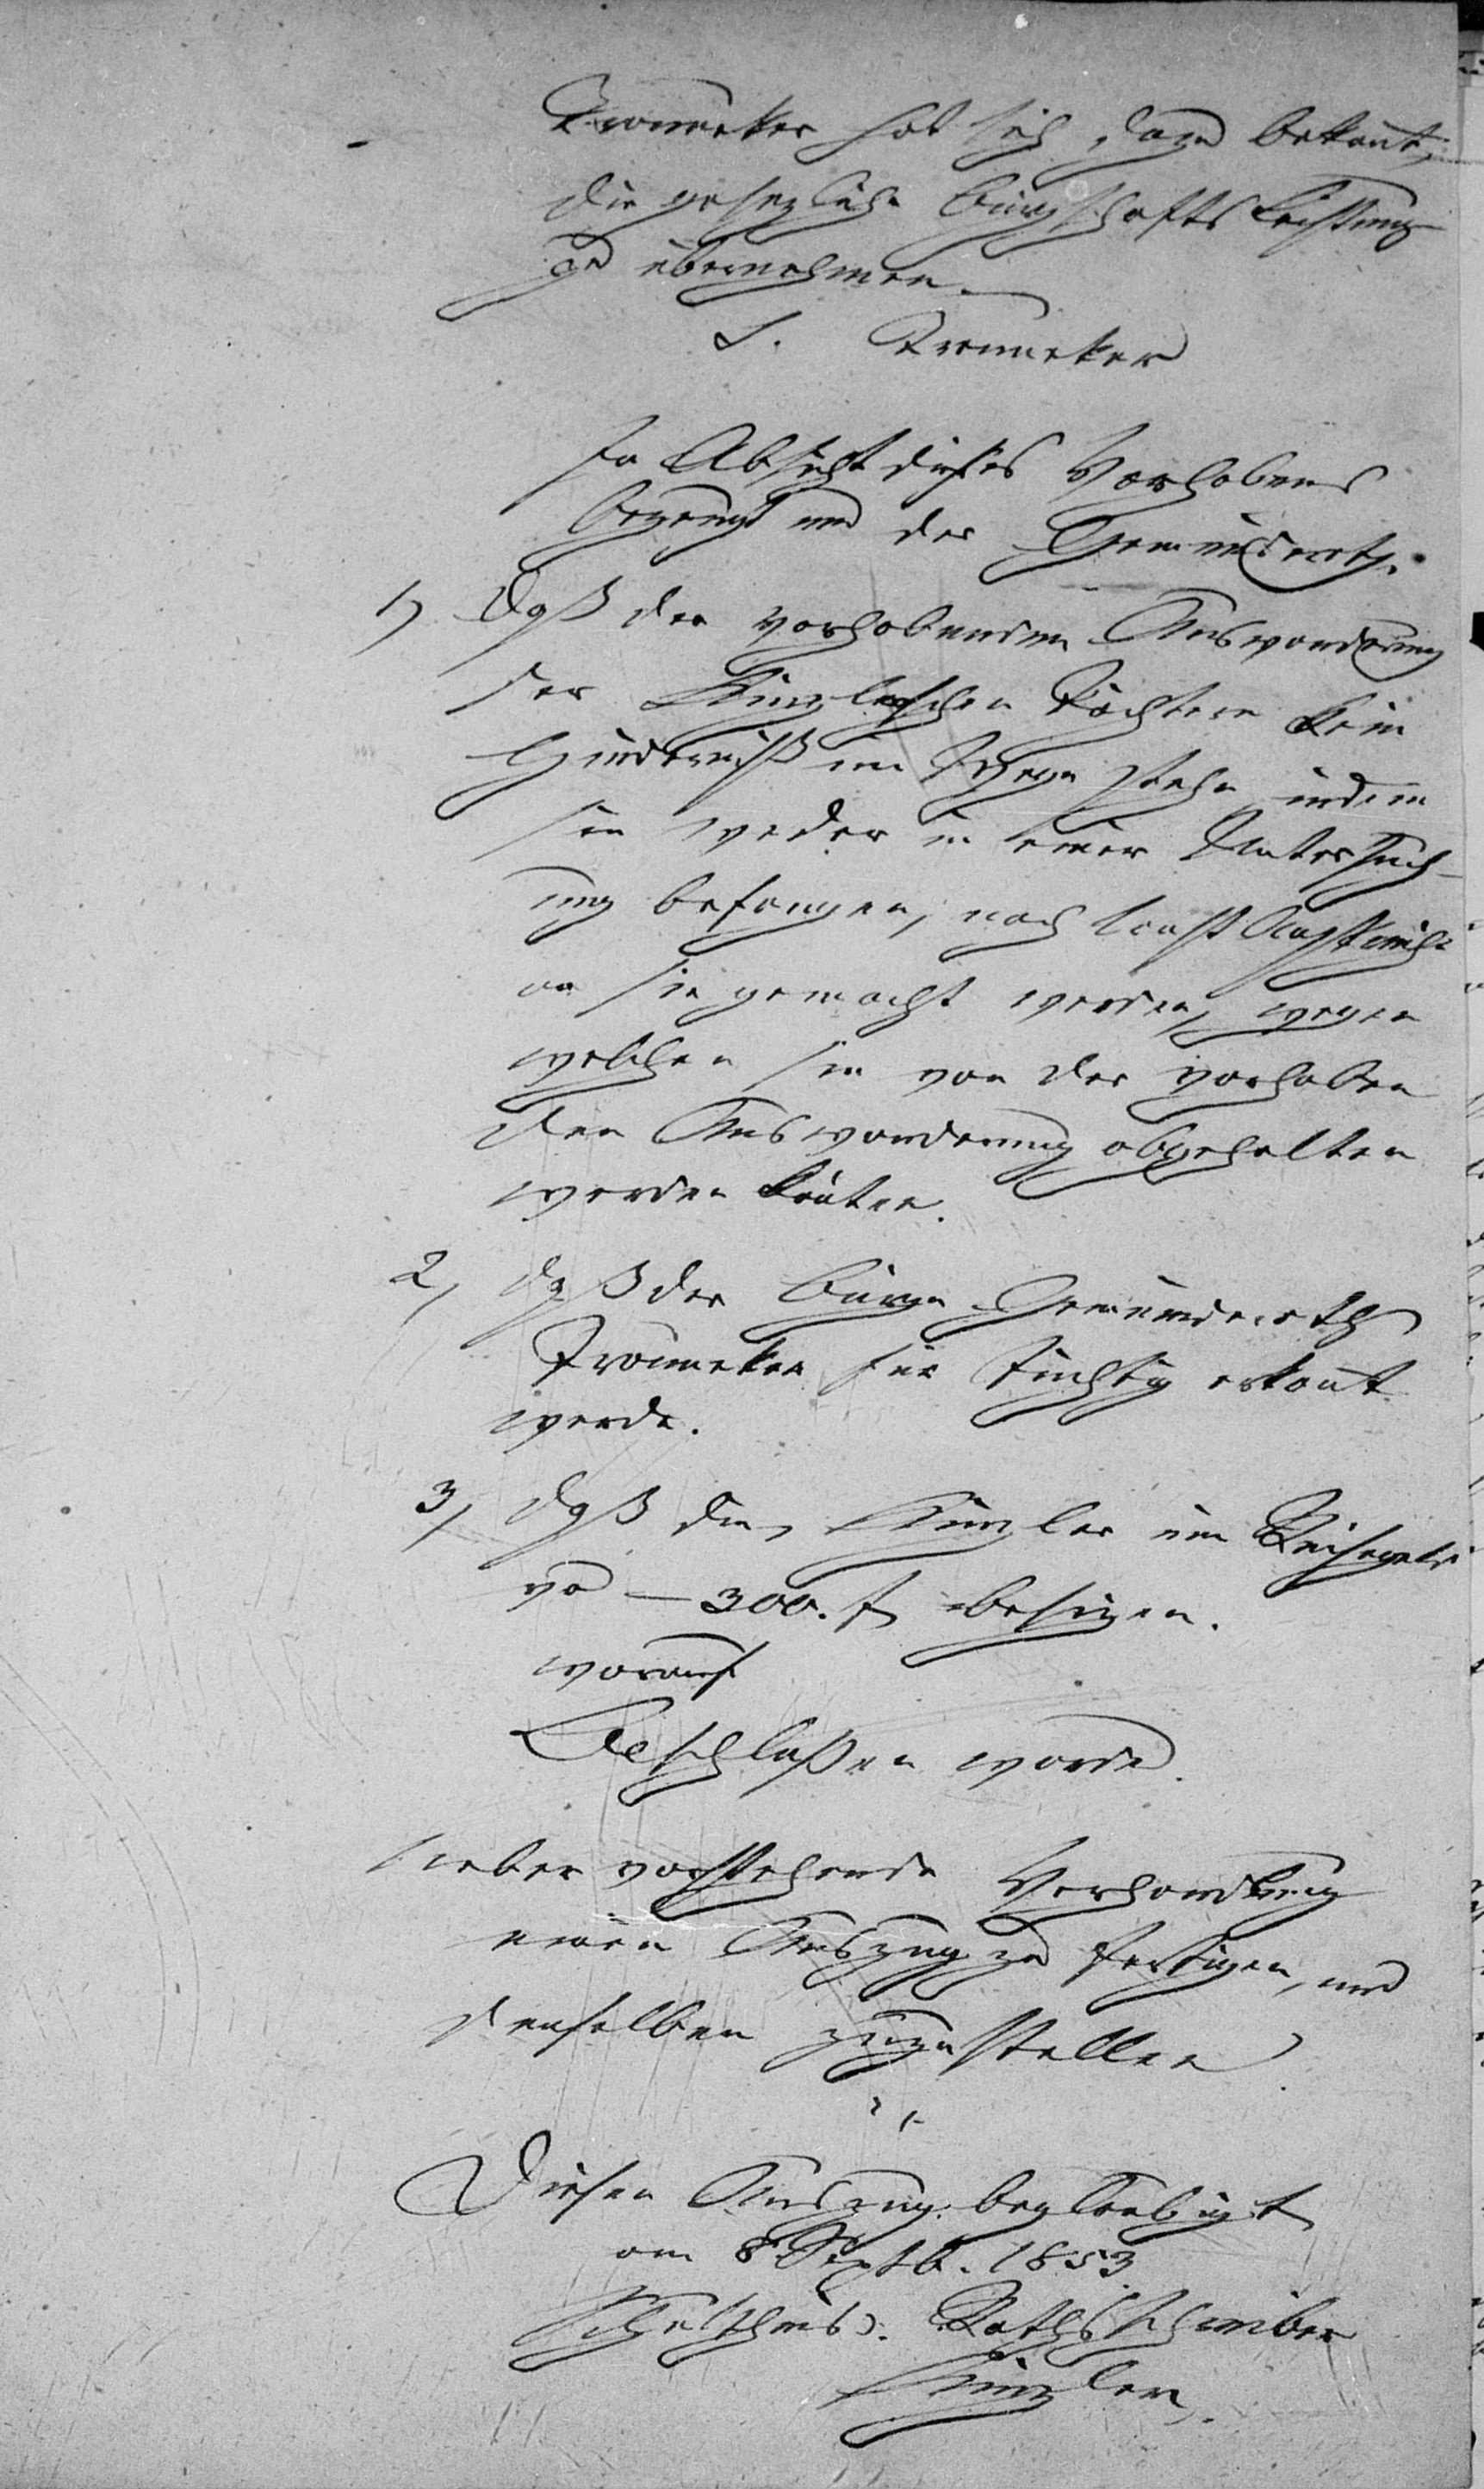 Kronneker hat sich dazu bekannt,
die gesezliche Bürgschaftsleistung
zu übernehmen.
T. Kronneker
In Absicht dieses Vorhabens
bezeugt nun der Gemeinderath.
1) Daß der vorhabenden Auswanderung
der Künzlerschen Töchtern kein
Hinderniß im Wege stehe, indem
sie weder in einer Untersuch-
ung befangen, noch sonst Ansprüche
an sie gemacht werden, wegen
welchen sie von der vorhaben
den Auswanderung abgehalten
werden könten.
2, daß der Bürge Gemeinderath
Kronneker für tüchtig erkannt
werde.
3, daß die, Künzler ein Reisegeld
von 300. f besizen.
worauf
Beschloßen wurde.
Ueber vorstehende Verhandlung
einen Auszug zu fertigen, und
denselben zuzustellen.
Diesen Auszug beglaubigt
am 8 Septb. 1853
Schultheis. Rathsschreiber
Künzler.